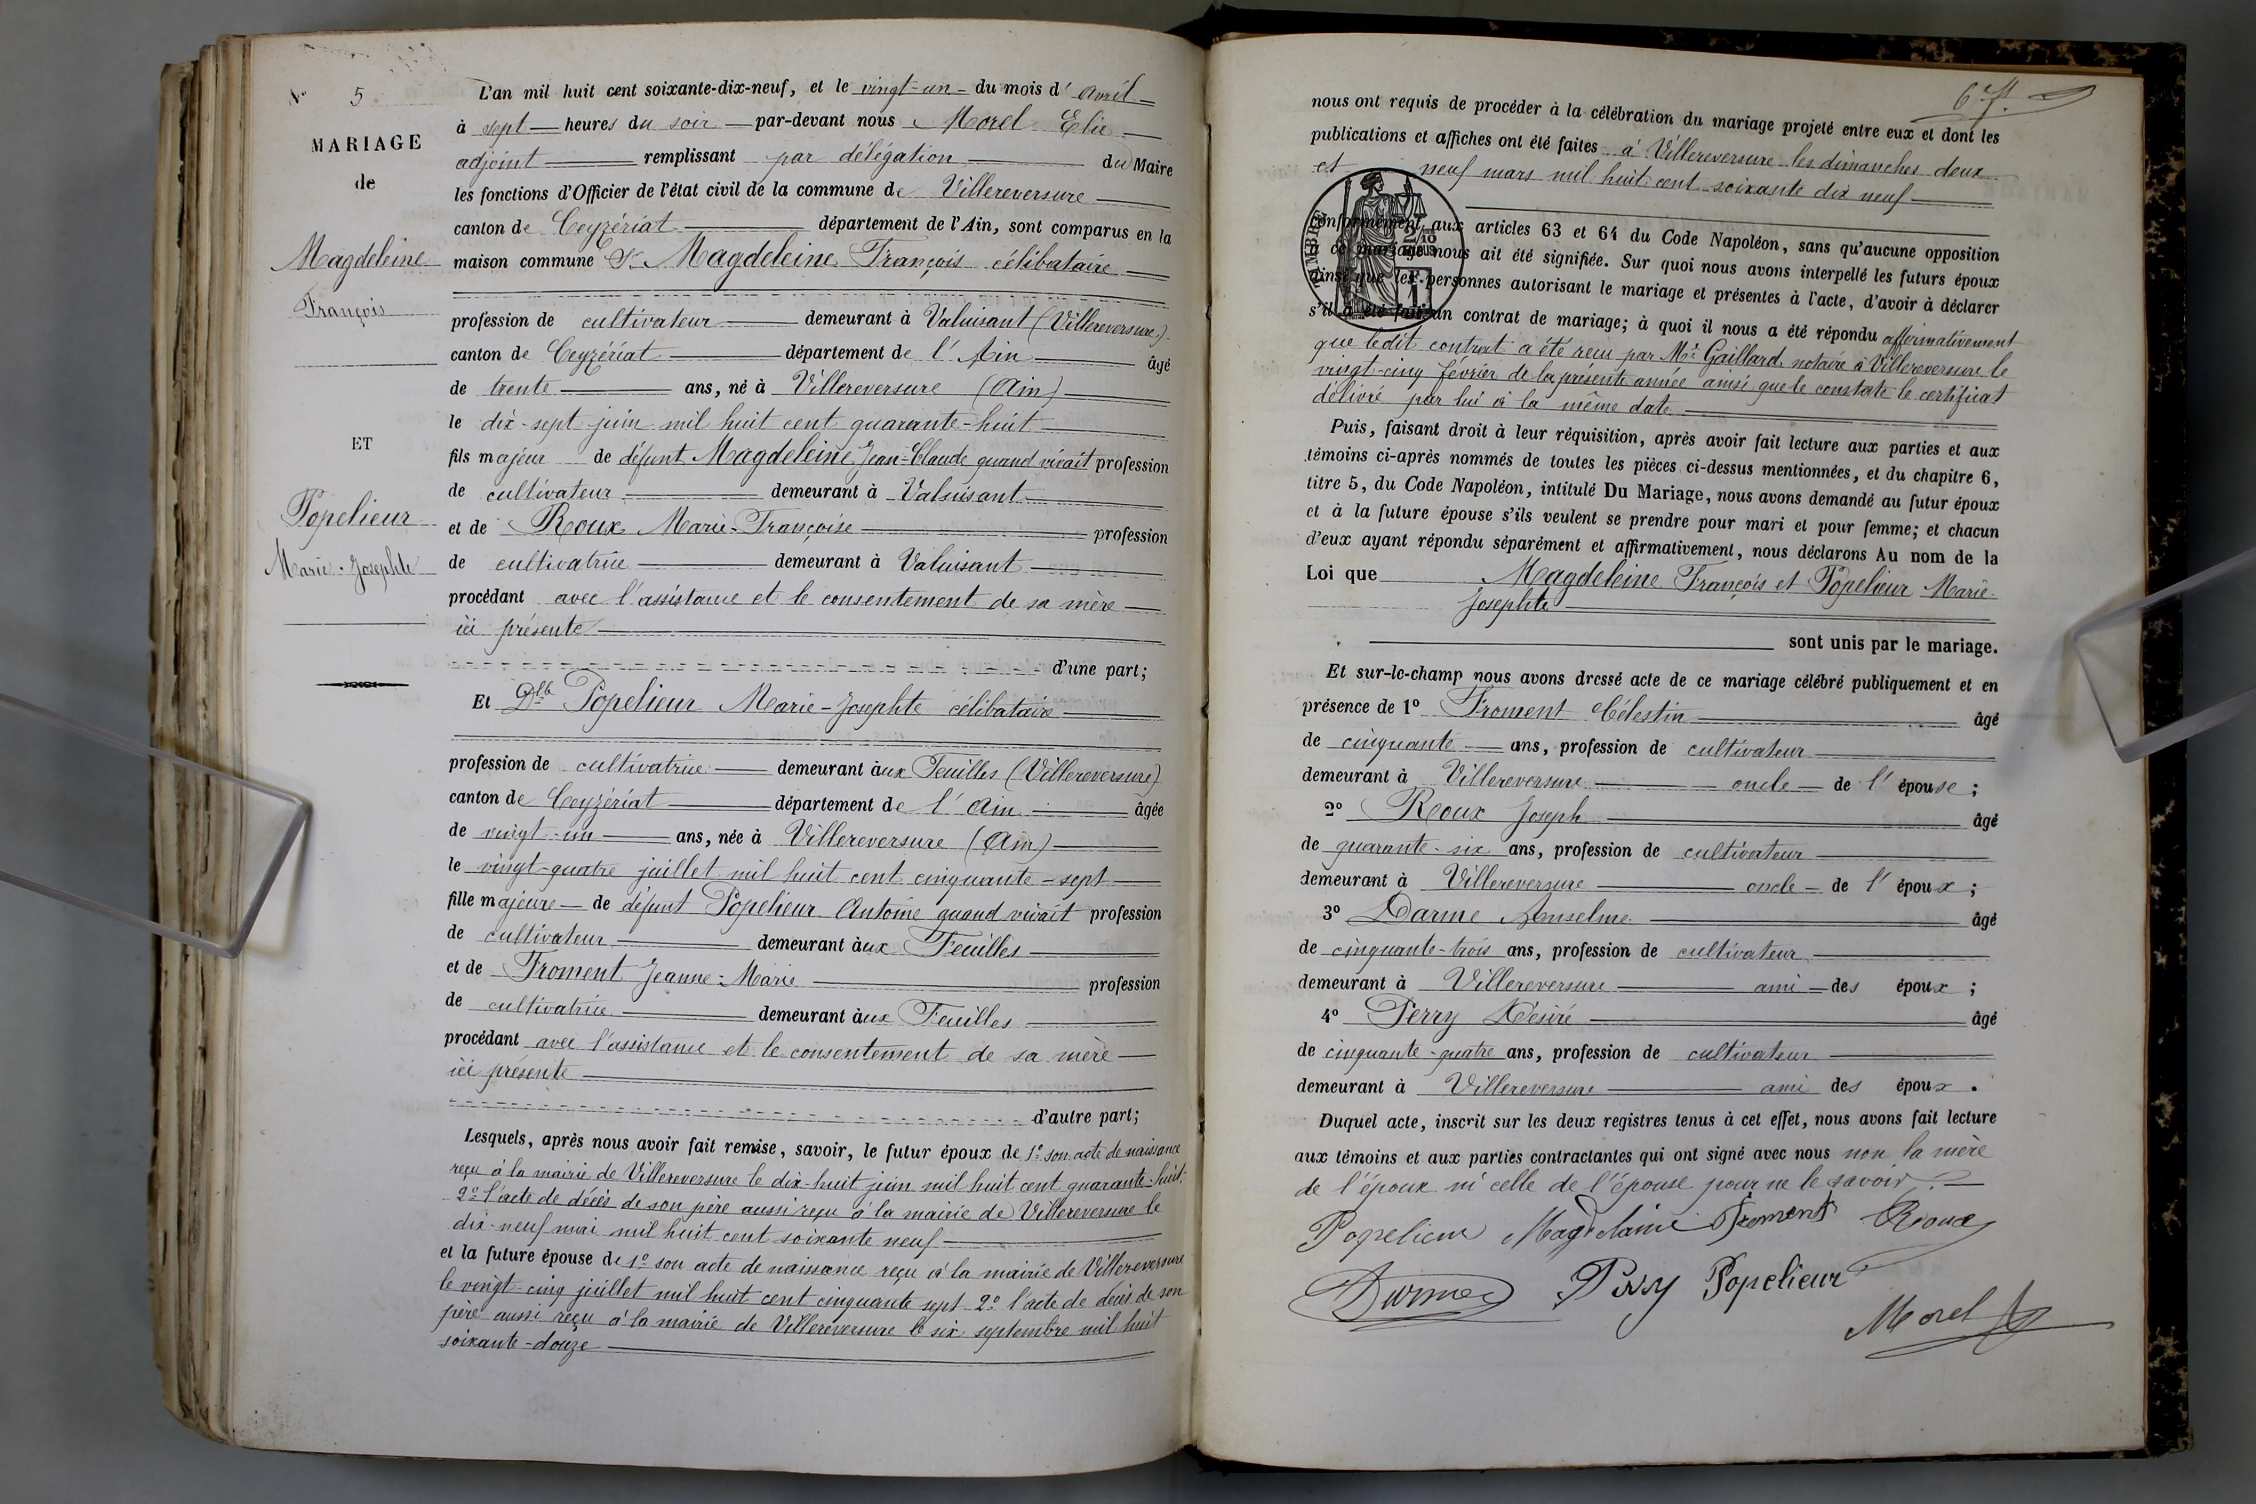 N° 5
MARIAGE
de
Magdeleine
François
ET
Popelieur
Marie-Josephte
L'an mil huit cent soixante-dix-neuf, et le vingt-un du mois d'avril
à sept heures du soir par-devant nous Morel Elie
adjoint remplissant par délégation du Maire
les fonctions d'Officier de l'état civil de la commune de Villereversure
canton de Ceyzériat département de l'Ain, sont comparus en la
maison commune Sr Magdeleine François célibataire
profession de cultivateur demeurant à Valuisant (Villereversure)
canton de Ceyzériat département de l'Ain âgé
de trente ans, né à Villereversure (Ain)
le dix-sept juin mil huit cent quarante-huit
fils majeur de défunt Magdeleine Jean-Claude quand vivait profession
de cultivateur demeurant à Valuisant
et de Roux Marie-Françoise profession
de cultivatrice demeurant à Valuisant
procédant avec l'assistance et le consentement de sa mère
ici présente
d'une part;
Et Dlle Popelieur Marie-Josephte célibataire
profession de cultivatrice demeurant àux Feuilles (Villereversure)
canton de Ceyzériat département de l'Ain âgée
de vingt-un ans, née à Villereversure (Ain)
le vingt-quatre juillet mil huit cent cinquante-sept
fille majeure de défunt Popelieur Antoine quand vivait profession
de cultivateur demeurant àux Feuilles
et de Froment Jeanne-Marie profession
de cultivatrice demeurant àux Feuilles
procédant avec l'assistance et le consentement de sa mère
ici présente
d'autre part;
Lesquels, après nous avoir fait remise, savoir, le futur époux de 1° son acte de naissance
reçu à la mairie de Villereversure le dix-huit juin mil huit cent quarante-huit
2° l'acte de décès de son père aussi reçu à la mairie de Villereversure le
dix-neuf mai mil huit cent soixante neuf
et la future épouse de 1° son acte de naissance reçu à la mairie de Villereversure
le vingt-cinq juillet mil huit cent cinquante sept 2° l'acte de décès de son
père aussi reçu à la mairie de Villereversure le six septembre mil huit
soixante-douze
67.
nous ont requis de procéder à la célébration du mariage projeté entre eux et dont les
publications et affiches ont été faites à Villereversure les dimanches deux
et neuf mars mil huit cent soixante dix neuf
conformément aux articles 63 et 64 du Code Napoléon, sans qu'aucune opposition
à ce mariage nous ait été signifiée. Sur quoi nous avons interpellé les futurs époux
ainsi que les personnes autorisant le mariage et présentes à l'acte, d'avoir à déclarer
s'il a été fait un contrat de mariage; à quoi il nous a été répondu affirmativement
que ledit contrat a été reçu par Me Gaillard notaire à Villereversure le
vingt-cinq février de la présente année ainsi que le constate le certificat
délivré par lui à la même date
Puis, faisant droit à leur réquisition, après avoir fait lecture aux parties et aux
témoins ci-après nommés de toutes les pièces ci-dessus mentionnées, et du chapitre 6,
titre 5, du Code Napoléon, intitulé Du Mariage, nous avons demandé au futur époux
et à la future épouse s'ils veulent se prendre pour mari et pour femme; et chacun
d'eux ayant répondu séparément et affirmativement, nous déclarons Au nom de la
Loi que Magdeleine François et Popelieur Marie-
Josephte
sont unis par le mariage.
Et sur-le-champ nous avons dressé acte de ce mariage célébré publiquement et en
présence de 1° Froment Célestin âgé
de cinquante ans, profession de cultivateur
demeurant à Villereversure oncle de l'épouse;
2° Roux Joseph âgé
de quarante-six ans, profession de cultivateur
demeurant à Villereversure oncle de l'époux;
3° Darme Anselme âgé
de cinquante-trois ans, profession de cultivateur
demeurant à Villereversure ami des époux;
4° Perry Désiré âgé
de cinquante-quatre ans, profession de cultivateur
demeurant à Villereversure ami des époux.
Duquel acte, inscrit sur les deux registres tenus à cet effet, nous avons fait lecture
aux témoins et aux parties contractantes qui ont signé avec nous non la mère
de l'époux ni celle de l'épouse pour ne le savoir.
Popelieur Magdelaine Froment Rioux
Darme Perry Popelieur
Morel